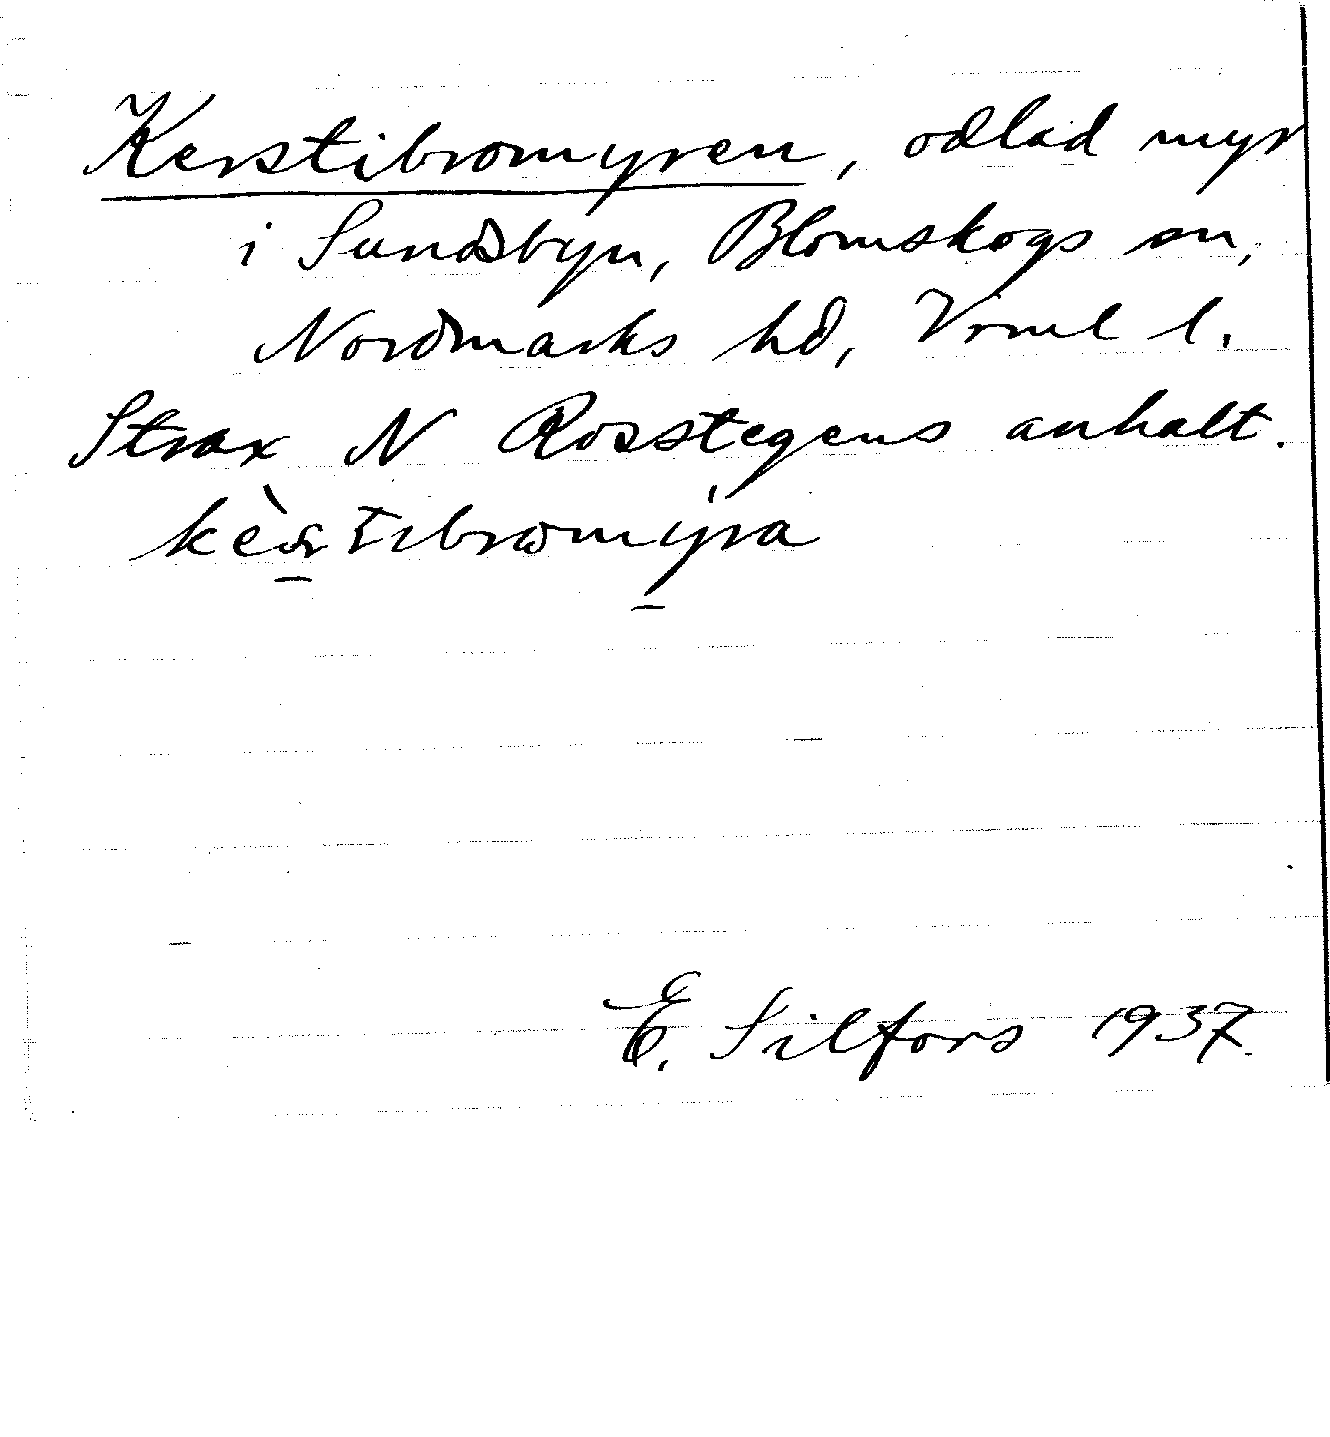 Kerstibromyren, odlad myr
i Sundsbyn, Blomskogs sn,
Nordmarks hd, Vrml l.
Strax N Rosstegens anhalt.
E. Silfors 1937.